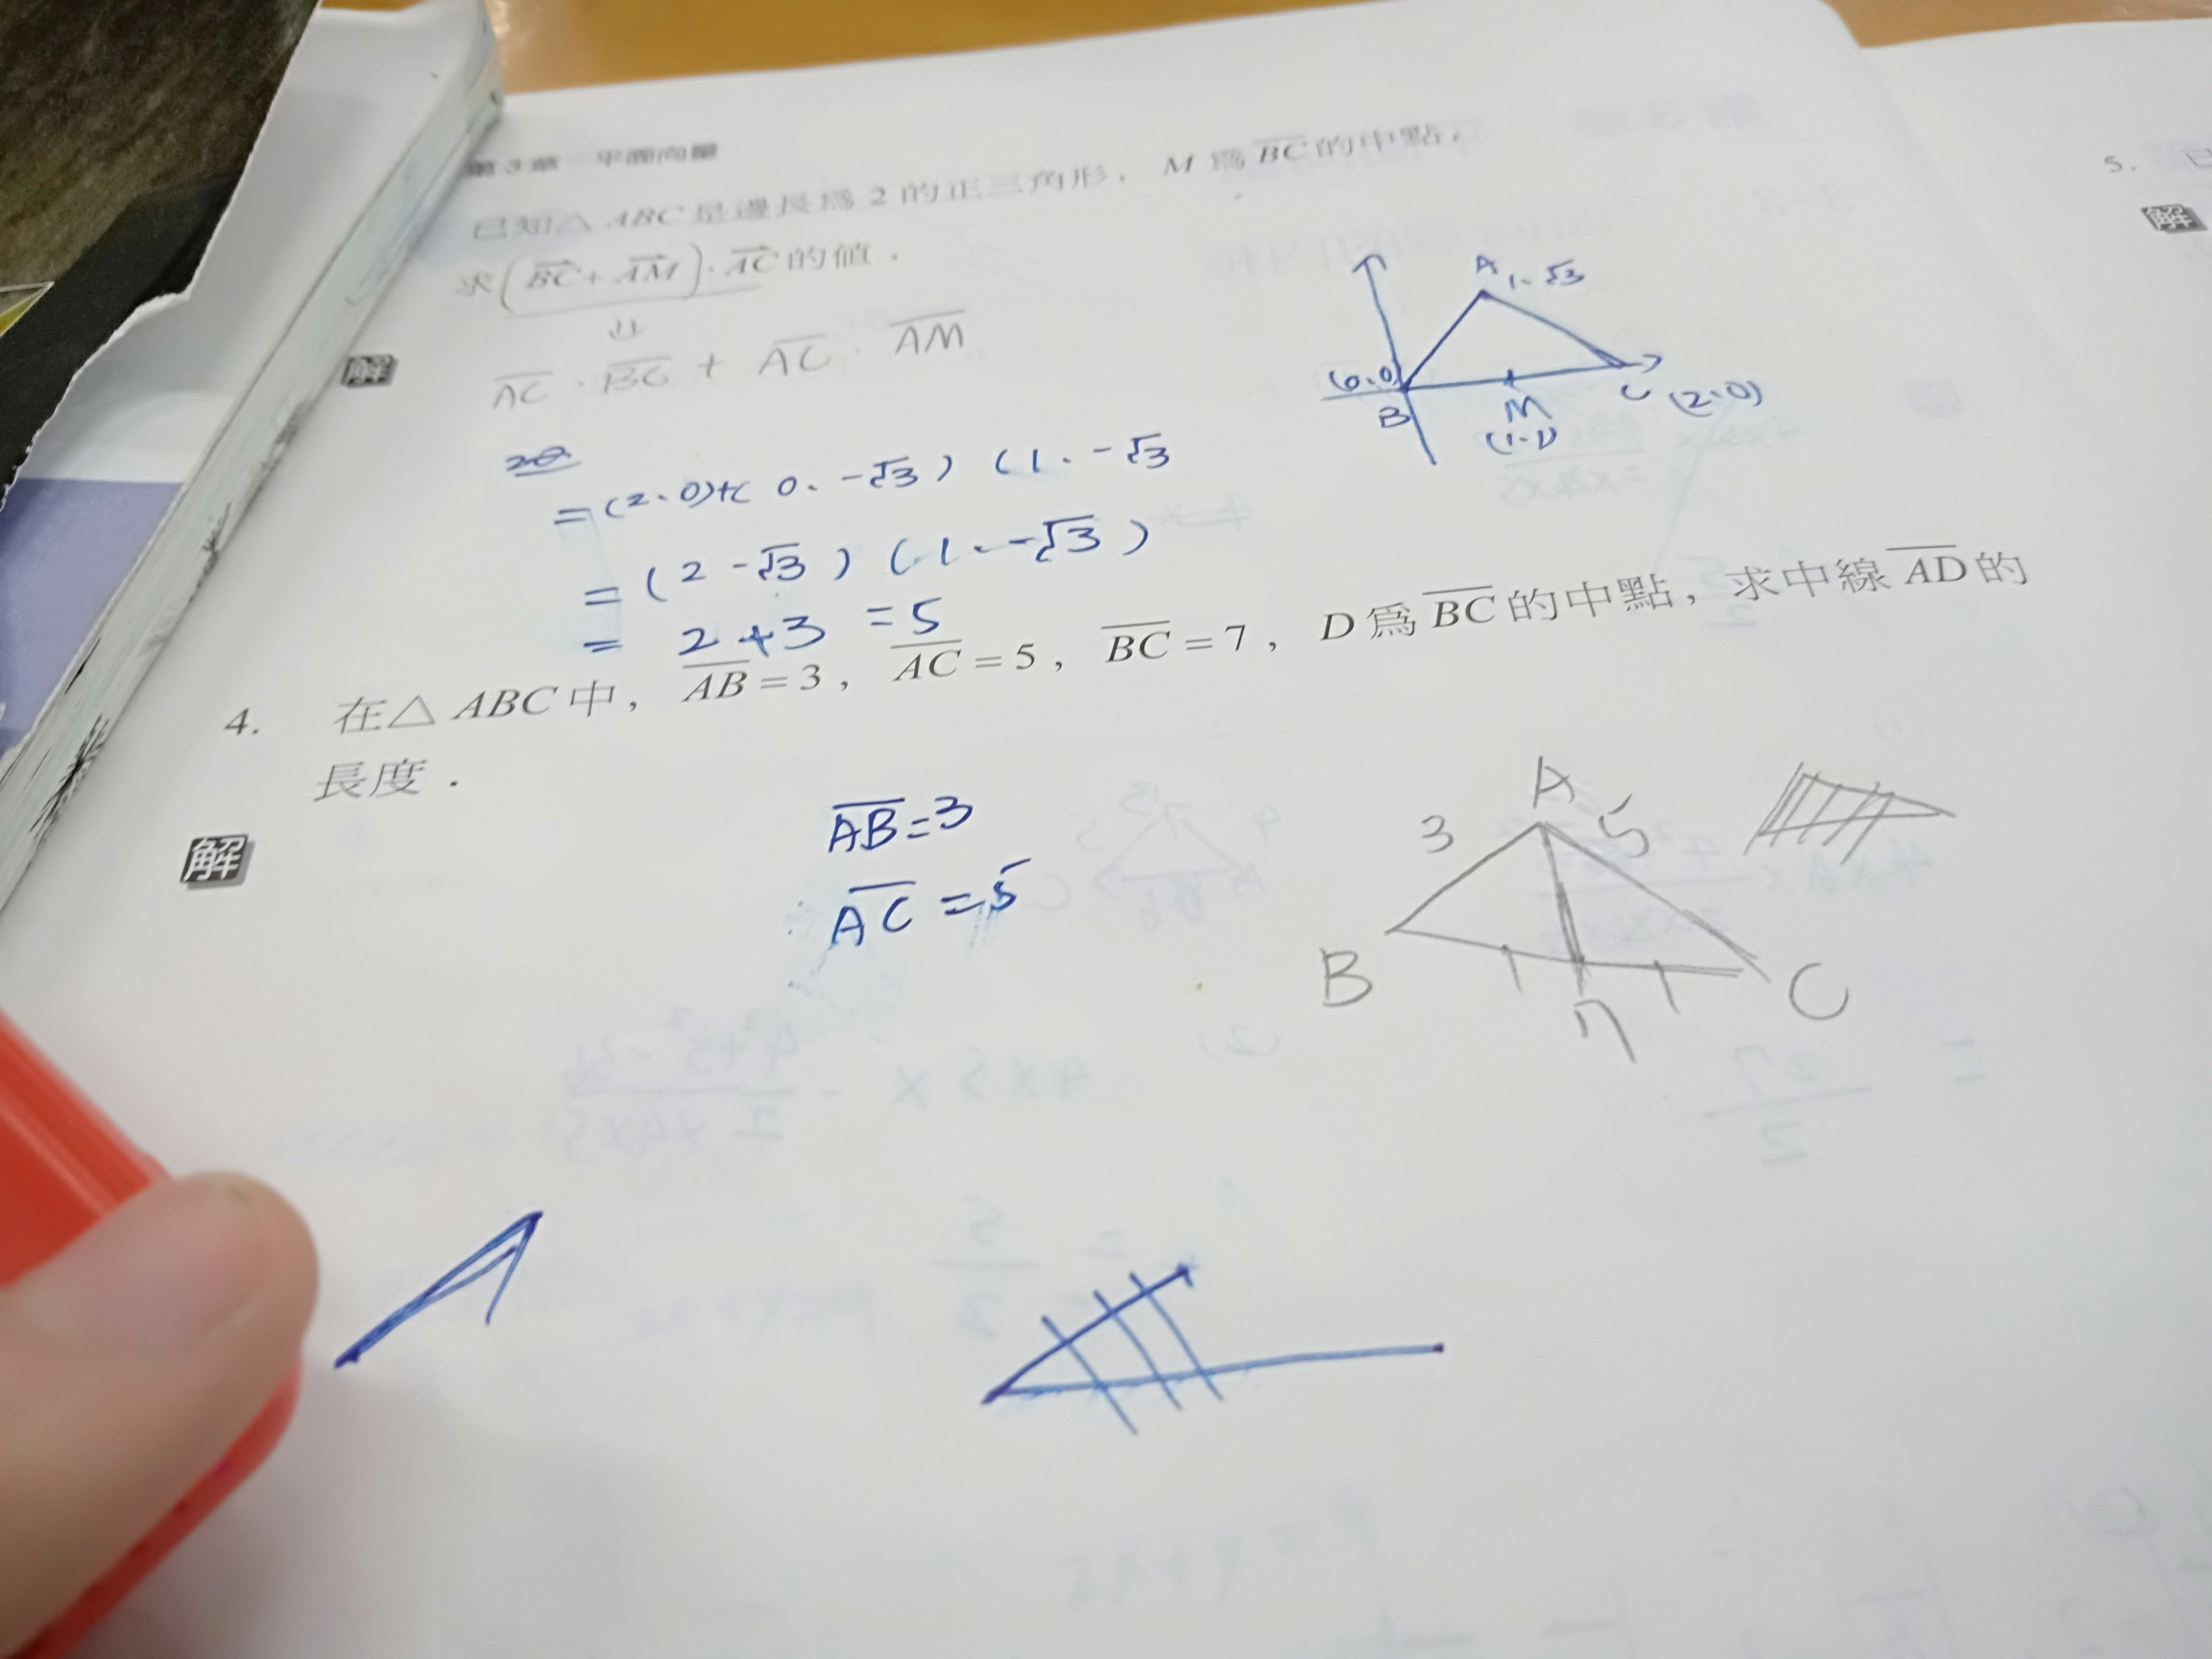 第3章 平面向量
已知△ABC是邊長為2的正三角形，M為BC的中點，
求(BC+AM)·AC的值．
解
AC · BC + AC · AM
=(2、0)+( 0、-√3 ) (1、-√3
=(2 -√3 ) (1、-√3 )
= 2+3 =5
A 1、√3
(0、0)
B
M
C (2、0)
4. 在△ABC中，AB=3，AC=5，BC=7，D為BC的中點，求中線AD的
長度．
解
AB=3
AC=5
A
3 5
B
C
5. 已
解